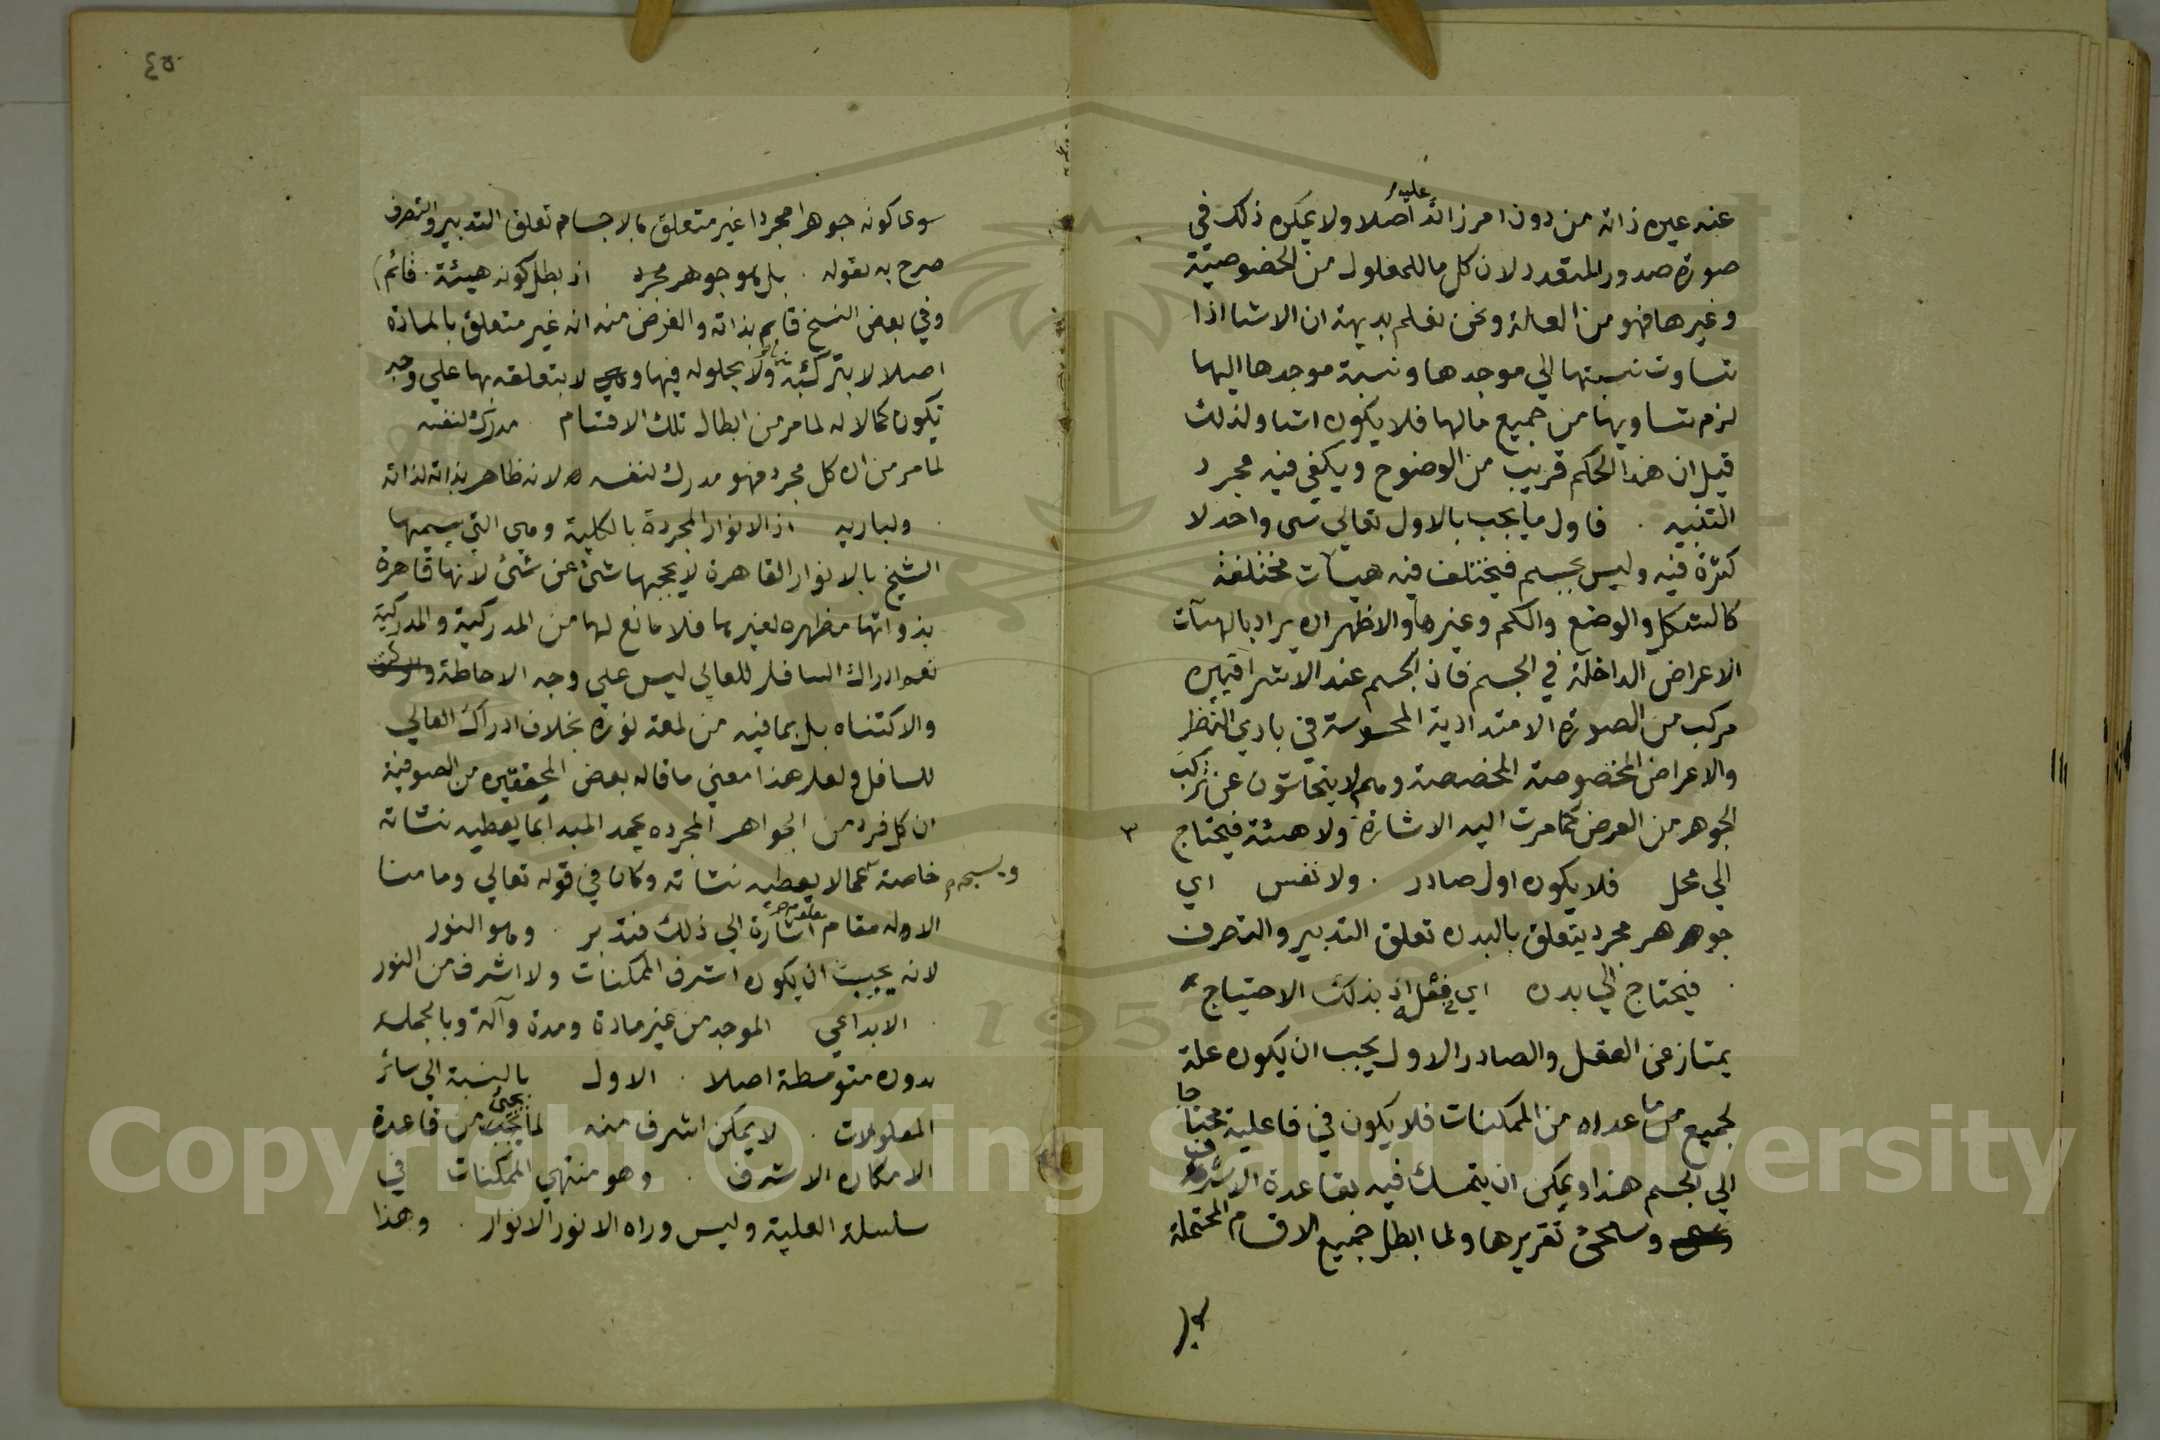 عنه عين ذاته من دون امر زائد عليه اصلا ولا يمكن ذلك في
صورة صدور المتعدد لان كل ما للمعلول من الخصوصية
وغيرها فهو من العلة ونحن نعلم بديهة ان الاشيا اذا
تساوت نسبتها الي موجدها ونسبة موجدها اليها
لزم تساويها من جميع مالها فلا يكون اشيا ولذلك
قيل ان هذا الحكم قريب من الوضوح ويكفي فيه مجرد
التنبيه . فاول ما يجب بالاول تعالي شي واحد لا
كثرة فيه وليس بجسم فيختلف فيه هيآت مختلفة
كالشكل والوضع والكم وغيرها والاظهر ان يراد بالهيآت
الاعراض الداخلة في الجسم فان الجسم عند الاشراقيين
مركب من الصورة الامتدادية المحسوسة في بادي النظر
والاعراض المخصوصة المخصصة وهم لا يتحاشون عن تركب
الجوهر من العرض كما مرت اليه الاشارة ولا هيئة فيحتاج ٣
الي محل فلا يكون اول صادر . ولا نفس اي
جوهر مجرد يتعلق بالبدن تعلق التدبير والتصرف
. فيحتاج الي بدن اي في فعله اذ بذلك الاحتياج
يمتاز عن العقل والصادر الاول يجب ان يكون علة
لجميع ما عداه من الممكنات فلا يكون في فاعلية محتاجا
الي الجسم هذا ويمكن ان يتمسك فيه بقاعدة الاشرف
وسيجئ تقريرها ولما ابطل جميع الاقسام المحتملة
٤٥
سوي كونه جوهرا مجردا غير متعلق بالاجسام تعلق التدبير والتصرف
صرح به بقوله . بل هو جوهر مجرد اذ بطل كونه هيئة . قائم
وفي بعض النسخ قايم بذاته والغرض منه انه غير متعلق بالمادة
اصلا لا بتركبه ولا بحلوله فيها ولا بتعلقه بها علي وجه
تكون كمالا له لما مر من ابطال تلك الاقسام مدرك لنفسه
لما مر من ان كل مجرد فهو مدرك لنفسه لانه ظاهر بذاته لذاته
. ولباريه اذ الانوار المجردة بالكلية وهي التي يسميها
الشيخ بالانوار القاهرة لا يحجبها شئ عن شئ لانها قاهرة
بذواتها مظهره لغيرها فلا مانع لها من المدركية والمدركية
نعم ادراك السافل للعالي ليس علي وجه الاحاطة
والاكتناه بل بما فيه من لمعة نوره بخلاف ادراك العالي
للسافل ولعل هذا معني ما قاله بعض المحققين من الصوفية
ان كل فرد من الجواهر المجرده يحمد المبدا بما يعطيه نشاته
ويسبحه خاصة عما لا يعطيه نشاته وكان في قوله تعالي وما منا
الا وله مقام معلوم اشارة الي ذلك فتدبر . وهو النور
لانه يجب ان يكون اشرف الممكنات ولا اشرف من النور
. الابداعي الموجد من غير مادة ومدة وآلة وبالجملة
بدون متوسطة اصلا . الاول بالنسبة الي سائر
المعلولات . لا يمكن اشرف منه لما يجئ من قاعدة
الامكان الاشرف . وهو منتهي الممكنات في
سلسلة العلية وليس وراه الا نور الانوار . وهذا
Copyright © King Saud University
1957